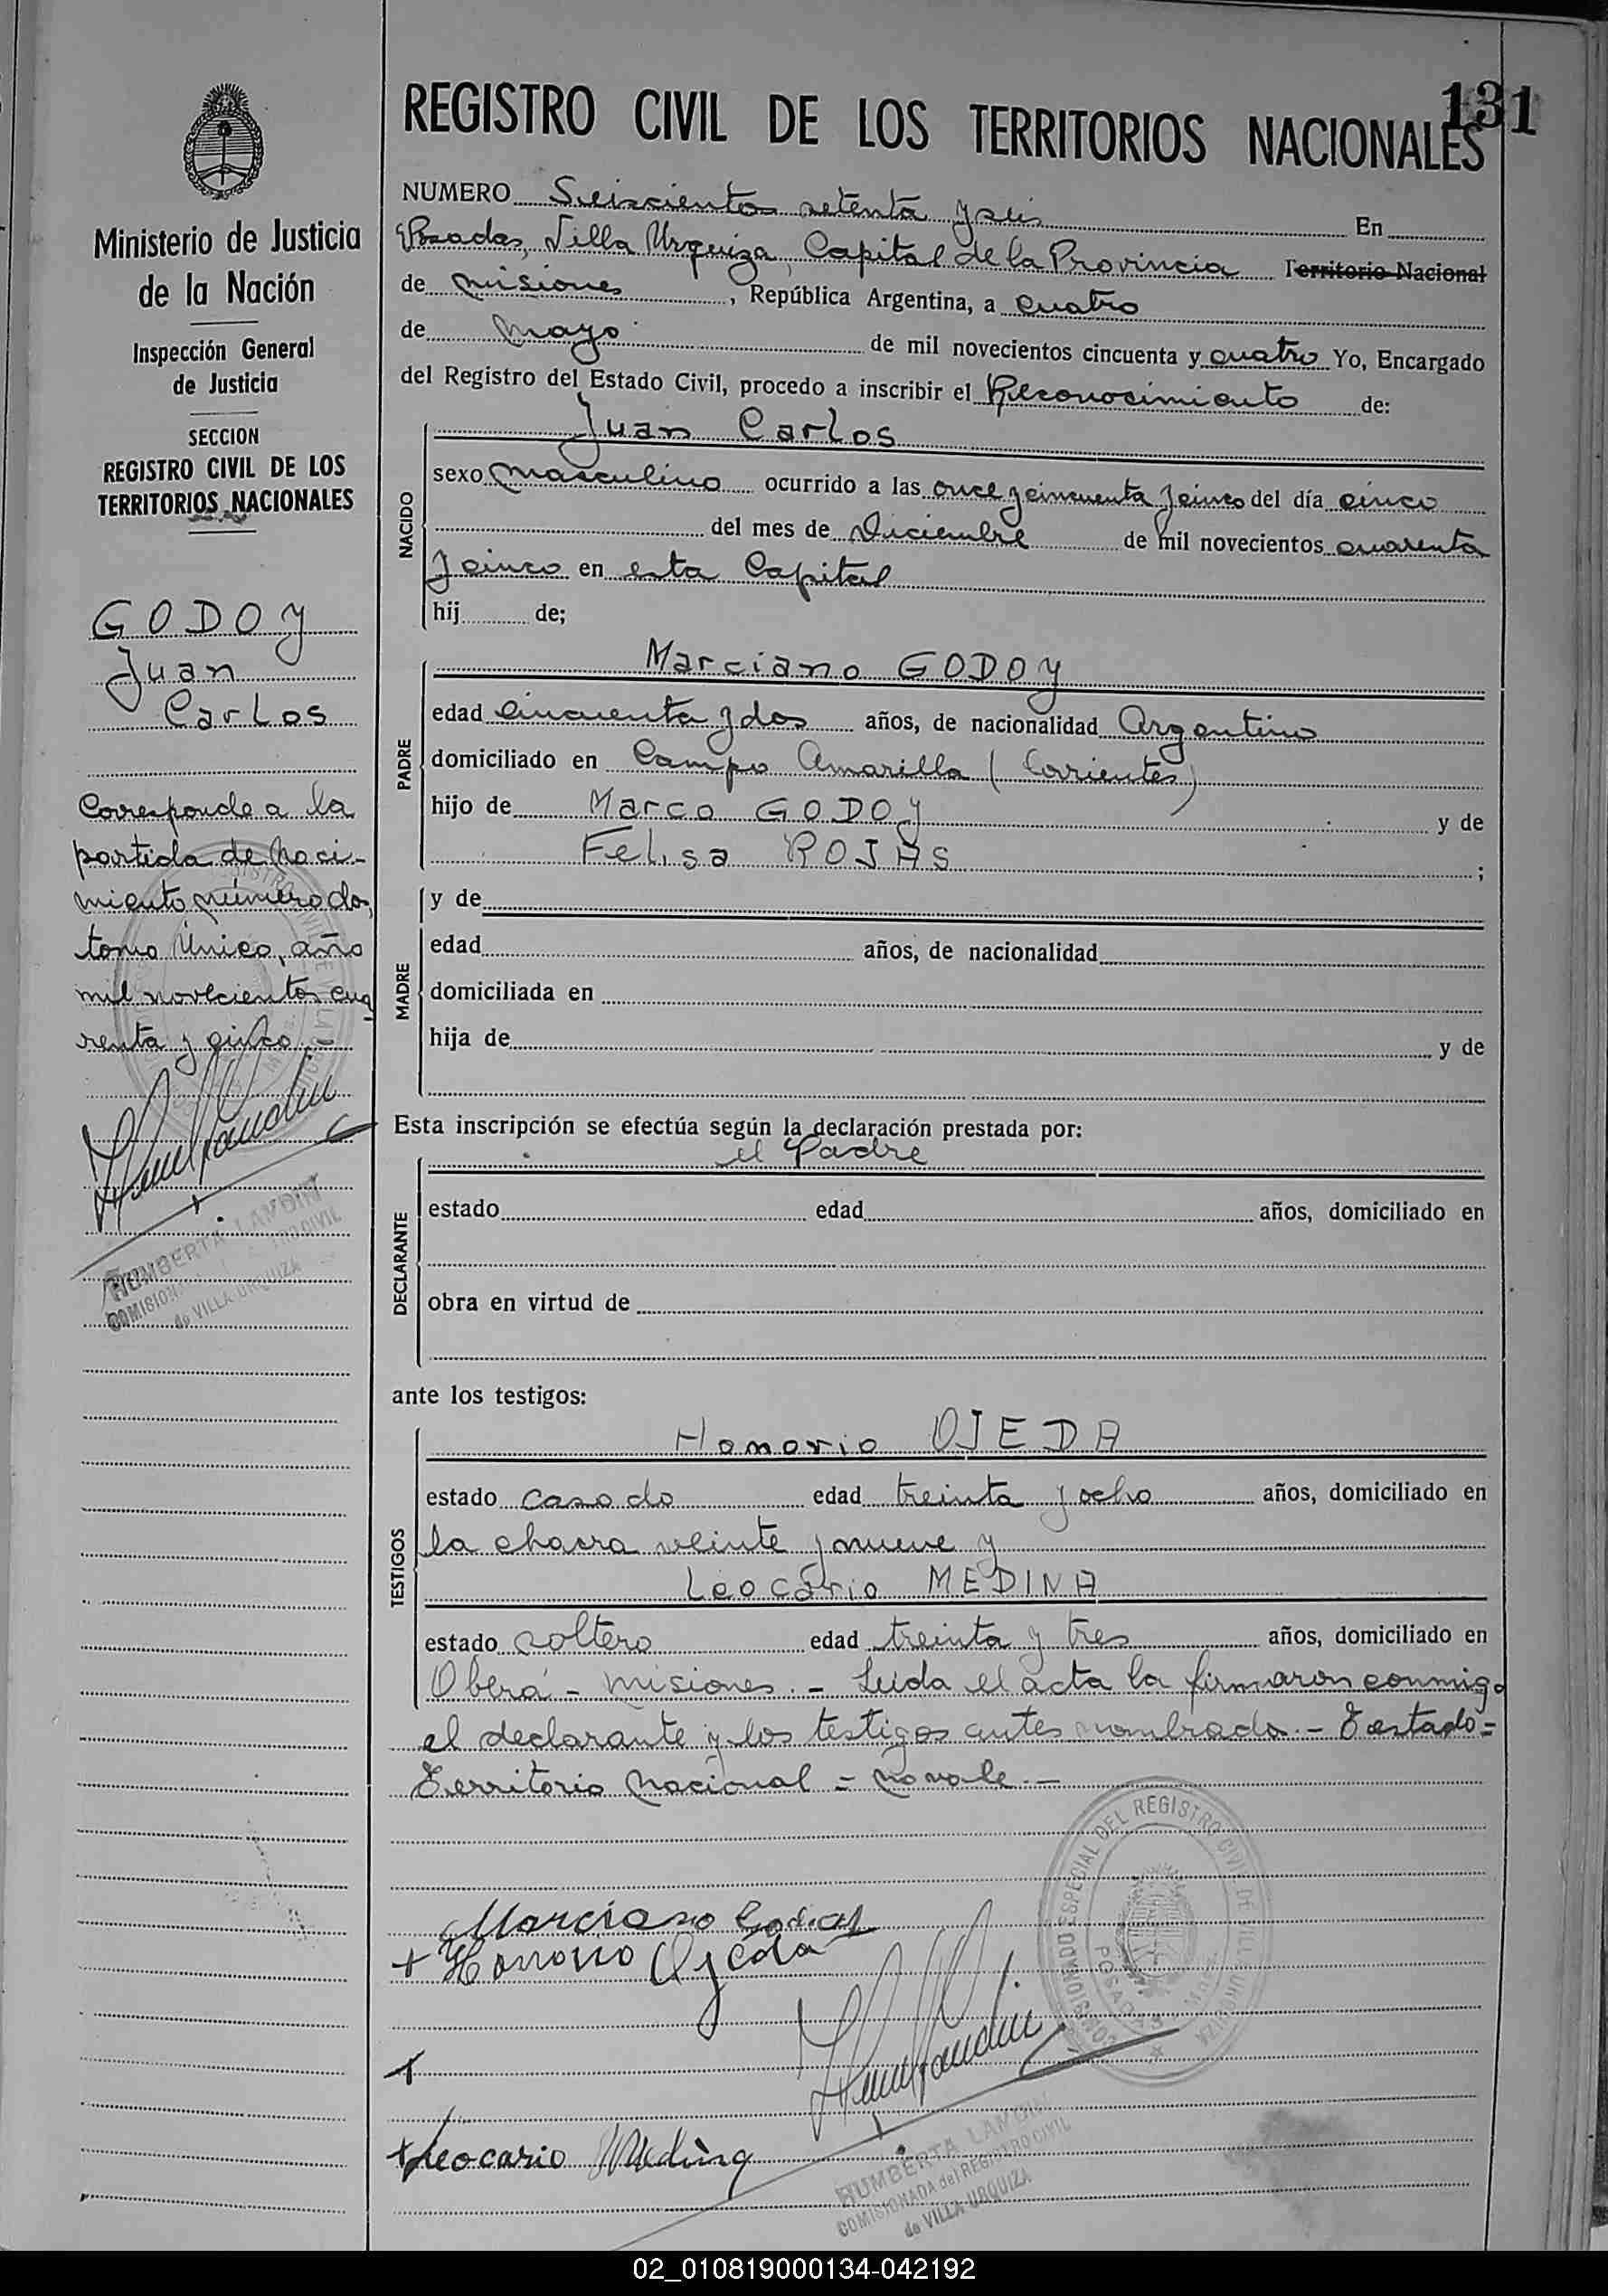 131
REGISTRO CIVIL DE LOS TERRITORIOS NACIONALES
Ministerio de Justicia
de la Nación
Inspección General
de Justicia
SECCION
REGISTRO CIVIL DE LOS
TERRITORIOS NACIONALES
GODOY
Juan
Carlos
Corresponde a la
partida de Naci-
miento número dos,
tomo Unico, año
mil novecientos cua
renta y cinco.-
HUMBERTA LANDIN
COMISION
de VILLA URQUIZA
NUMERO Seiscientos setenta y seis En
Posadas, Villa Urquiza, Capital de la Provincia Territorio Nacional
de Misiones, República Argentina, a cuatro
de Mayo de mil novecientos cincuenta y cuatro Yo, Encargado
del Registro del Estado Civil, procedo a inscribir el Reconocimiento de:
NACIDO
Juan Carlos
sexo masculino ocurrido a las once y cincuenta y cinco del día cinco
del mes de Diciembre de mil novecientos cuarenta
y cinco en esta Capital
hij de;
PADRE
Marciano GODOY
edad cincuenta y dos años, de nacionalidad Argentino
domiciliado en Campo Amarilla (Corrientes)
hijo de Marco GODOY y de
Felisa ROJAS ;
MADRE
y de
edad años, de nacionalidad
domiciliada en
hija de y de
Esta inscripción se efectúa según la declaración prestada por:
DECLARANTE
el Padre
estado edad años, domiciliado en
obra en virtud de
ante los testigos:
TESTIGOS
Honorio OJEDA
estado casado edad treinta y ocho años, domiciliado en
la chacra veinte y nueve y
Leocario MEDINA
estado soltero edad treinta y tres años, domiciliado en
Oberá - Misiones.- Leida el acta la firmaron conmigo
el declarante y los testigos antes nombrado.- Testado=
Territorio Nacional = no vale.-
Marciano Godoy
+ Honorio Ojeda
+ Leocario Medina
HUMBERTA LANDIN
COMISIONADA del REGISTRO CIVIL
de VILLA URQUIZA
02_010819000134-042192